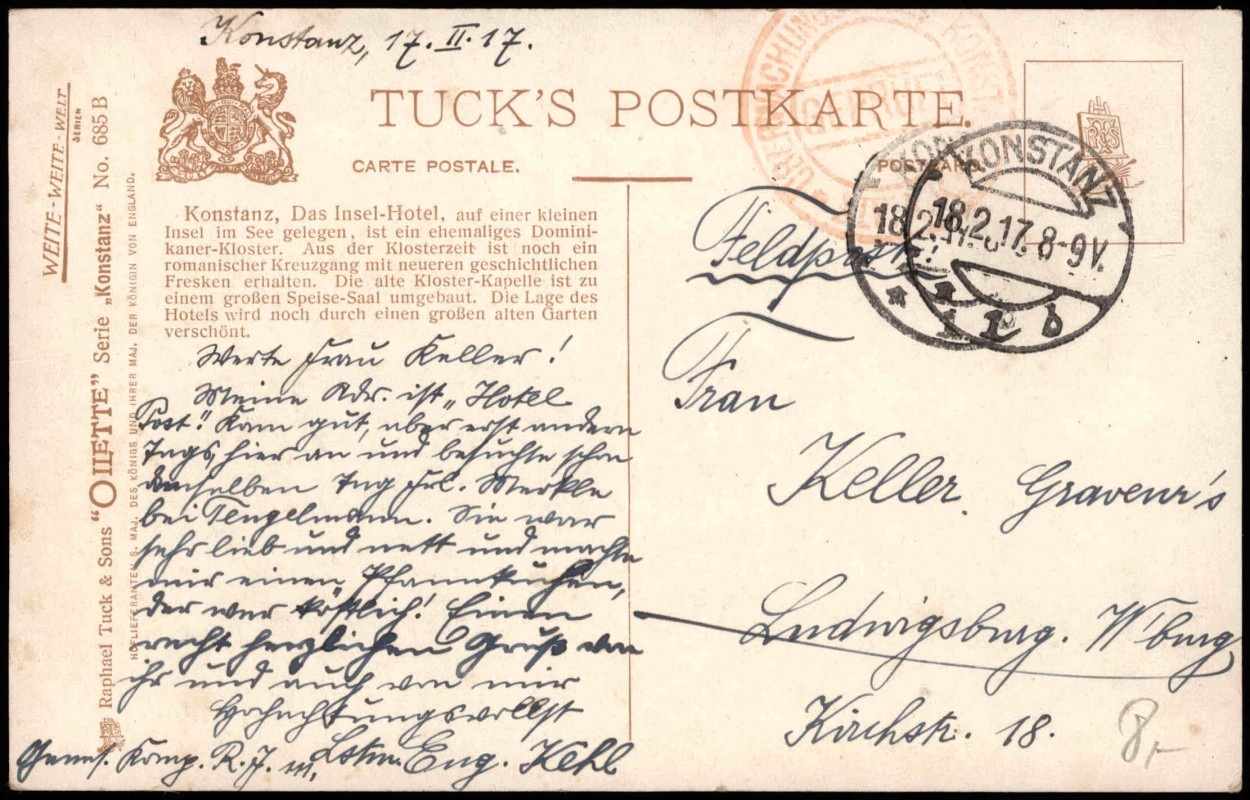 Konstanz, 17. II. 17.
TUCK'S POSTKARTE.
CARTE POSTALE.
POSTCARD
WEITE-WEITE-WELT
SERIEN
Raphael Tuck & Sons "OILETTE" Serie „Konstanz" No. 685 B
HOFLIEFERANTEN S. MAJ. DES KÖNIGS UND IHRER MAJ. DER KÖNIGIN VON ENGLAND.
Konstanz, Das Insel-Hotel, auf einer kleinen
Insel im See gelegen, ist ein ehemaliges Domini-
kaner-Kloster. Aus der Klosterzeit ist noch ein
romanischer Kreuzgang mit neueren geschichtlichen
Fresken erhalten. Die alte Kloster-Kapelle ist zu
einem großen Speise-Saal umgebaut. Die Lage des
Hotels wird noch durch einen großen alten Garten
verschönt.
Werte Frau Keller!
Meine Adr. ist „Hotel
Post". Kam gut, aber erst andern
Tags, hier an und besuchte schon
demselben Tag Frl. Merkle
bei Tengelmann. Sie war
sehr lieb und nett und machte
mir einen Pfannkuchen,
der war köstlich! Einen
recht herzlichen Gruß von
ihr und auch von mir
Hochachtungsvollst
Genes. Komp. R. J. Lstm. Eug. Kehl
Feldpost
Frau
Keller, Graveur's
Ludwigsburg. W'burg
Kirchstr. 18.
KONSTANZ
18.2.17.8-9V.
* 1 b
ÜBERWACHUNGS KONSTANZ
8,-